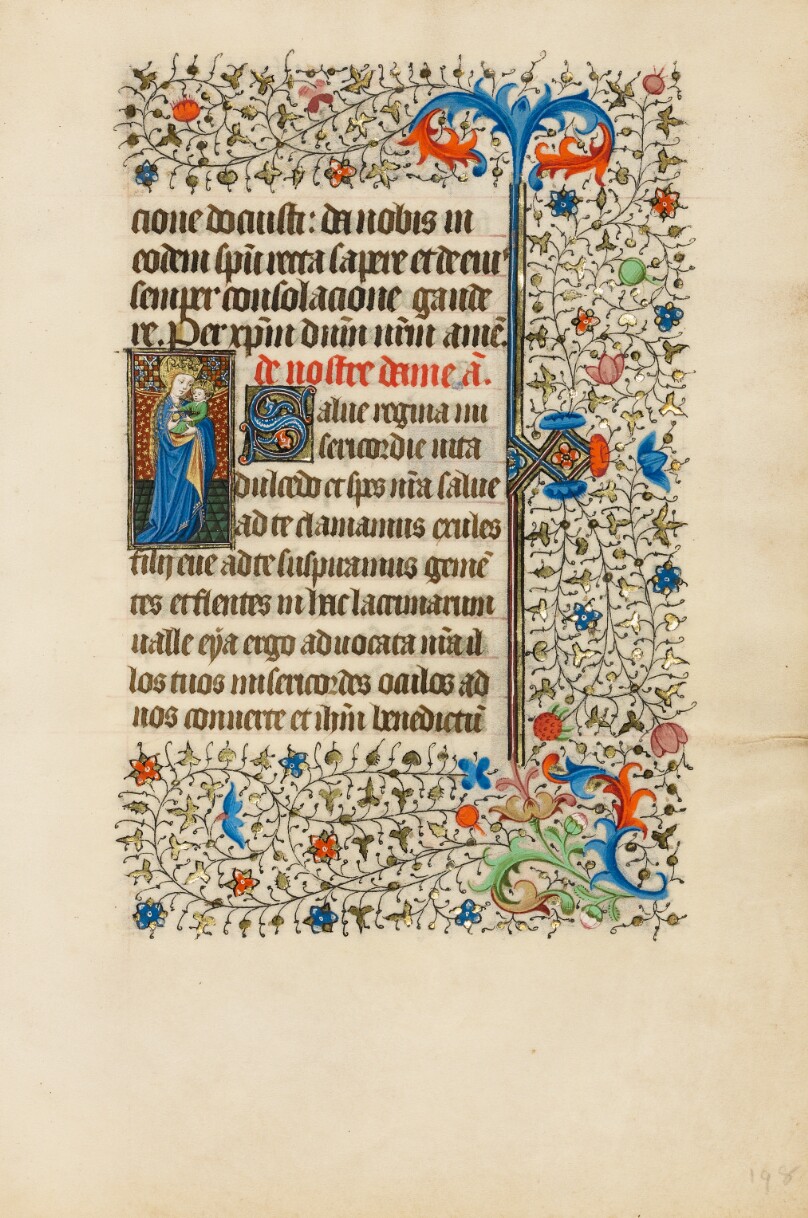 cione docuisti: da nobis in
eodem spũ recta sapere et de eius
semper consolacione gaude
re. Per xp̃m dñm nr̃m amẽ.
de nostre dame ã.
Salue regina mi
sericordie uita
dulcedo et spes nr̃a salue
ad te clamamus exules
filij eue ad te suspiramus gemẽ
tes et flentes in hac lacrimarum
ualle eẏa ergo aduocata nr̃a il
los tuos misericordes oculos ad
nos conuerte et ih̃m benedictũ
198